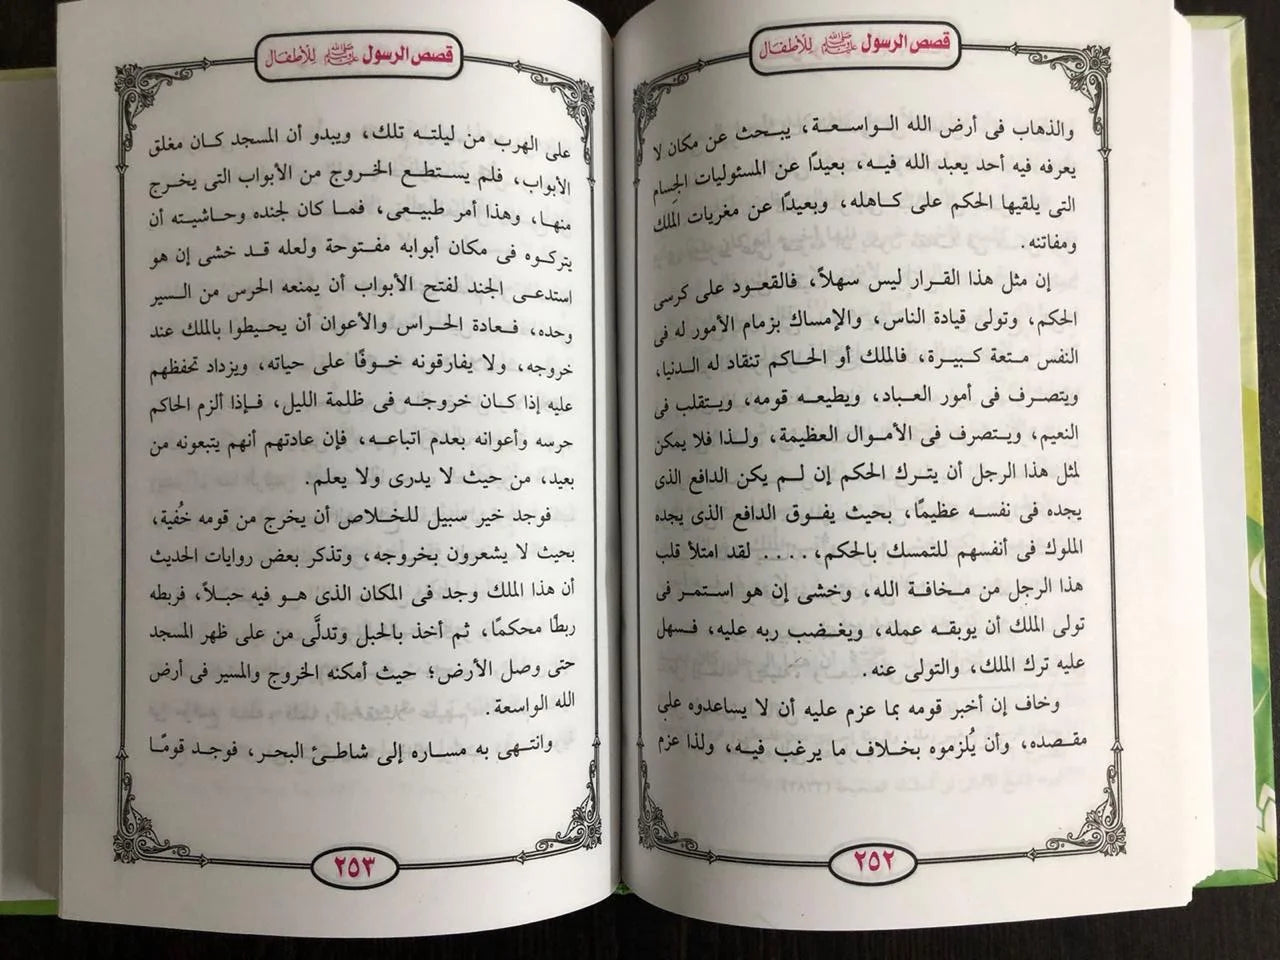 قصص الرسول ﷺ للأطفال
والذهاب فى أرض الله الواسعة، يبحث عن مكان لا
يعرفه فيه أحد يعبد الله فيه، بعيدًا عن المسئوليات الجِسام
التى يلقيها الحكم على كاهله، وبعيدًا عن مغريات الملك
ومفاتنه.
إن مثل هذا القرار ليس سهلاً، فالقعود على كرسى
الحكم، وتولى قيادة الناس، والإمساك بزمام الأمور له فى
النفس متعة كبيرة، فالملك أو الحاكم تنقاد له الدنيا،
ويتصرف فى أمور العباد، ويطيعه قومه، ويتقلب فى
النعيم، ويتصرف فى الأموال العظيمة، ولذا فلا يمكن
لمثل هذا الرجل أن يترك الحكم إن لم يكن الدافع الذى
يجده فى نفسه عظيمًا، بحيث يفوق الدافع الذى يجده
الملوك فى أنفسهم للتمسك بالحكم، .... لقد امتلأ قلب
هذا الرجل من مخافة الله، وخشى إن هو استمر فى
تولى الملك أن يوبقه عمله، ويغضب ربه عليه، فسهل
عليه ترك الملك، والتولى عنه.
وخاف إن أخبر قومه بما عزم عليه أن لا يساعدوه على
مقصده، وأن يُلزموه بخلاف ما يرغب فيه، ولذا عزم
٢٥٢
قصص الرسول ﷺ للأطفال
على الهرب من ليلته تلك، ويبدو أن المسجد كان مغلق
الأبواب، فلم يستطع الخروج من الأبواب التى يخرج
منها، وهذا أمر طبيعى، فما كان لجنده وحاشيته أن
يتركوه فى مكان أبوابه مفتوحة ولعله قد خشى إن هو
استدعى الجند لفتح الأبواب أن يمنعه الحرس من السير
وحده، فعادة الحراس والأعوان أن يحيطوا بالملك عند
خروجه، ولا يفارقونه خوفًا على حياته، ويزداد تحفظهم
عليه إذا كان خروجه فى ظلمة الليل، فإذا ألزم الحاكم
حرسه وأعوانه بعدم اتباعه، فإن عادتهم أنهم يتبعونه من
بعيد، من حيث لا يدرى ولا يعلم.
فوجد خير سبيل للخلاص أن يخرج من قومه خُفية،
بحيث لا يشعرون بخروجه، وتذكر بعض روايات الحديث
أن هذا الملك وجد فى المكان الذى هو فيه حبلاً، فربطه
ربطًا محكمًا، ثم أخذ بالحبل وتدلَّى من على ظهر المسجد
حتى وصل الأرض؛ حيث أمكنه الخروج والمسير فى أرض
الله الواسعة.
وانتهى به مساره إلى شاطئ البحر، فوجد قومًا
٢٥٣